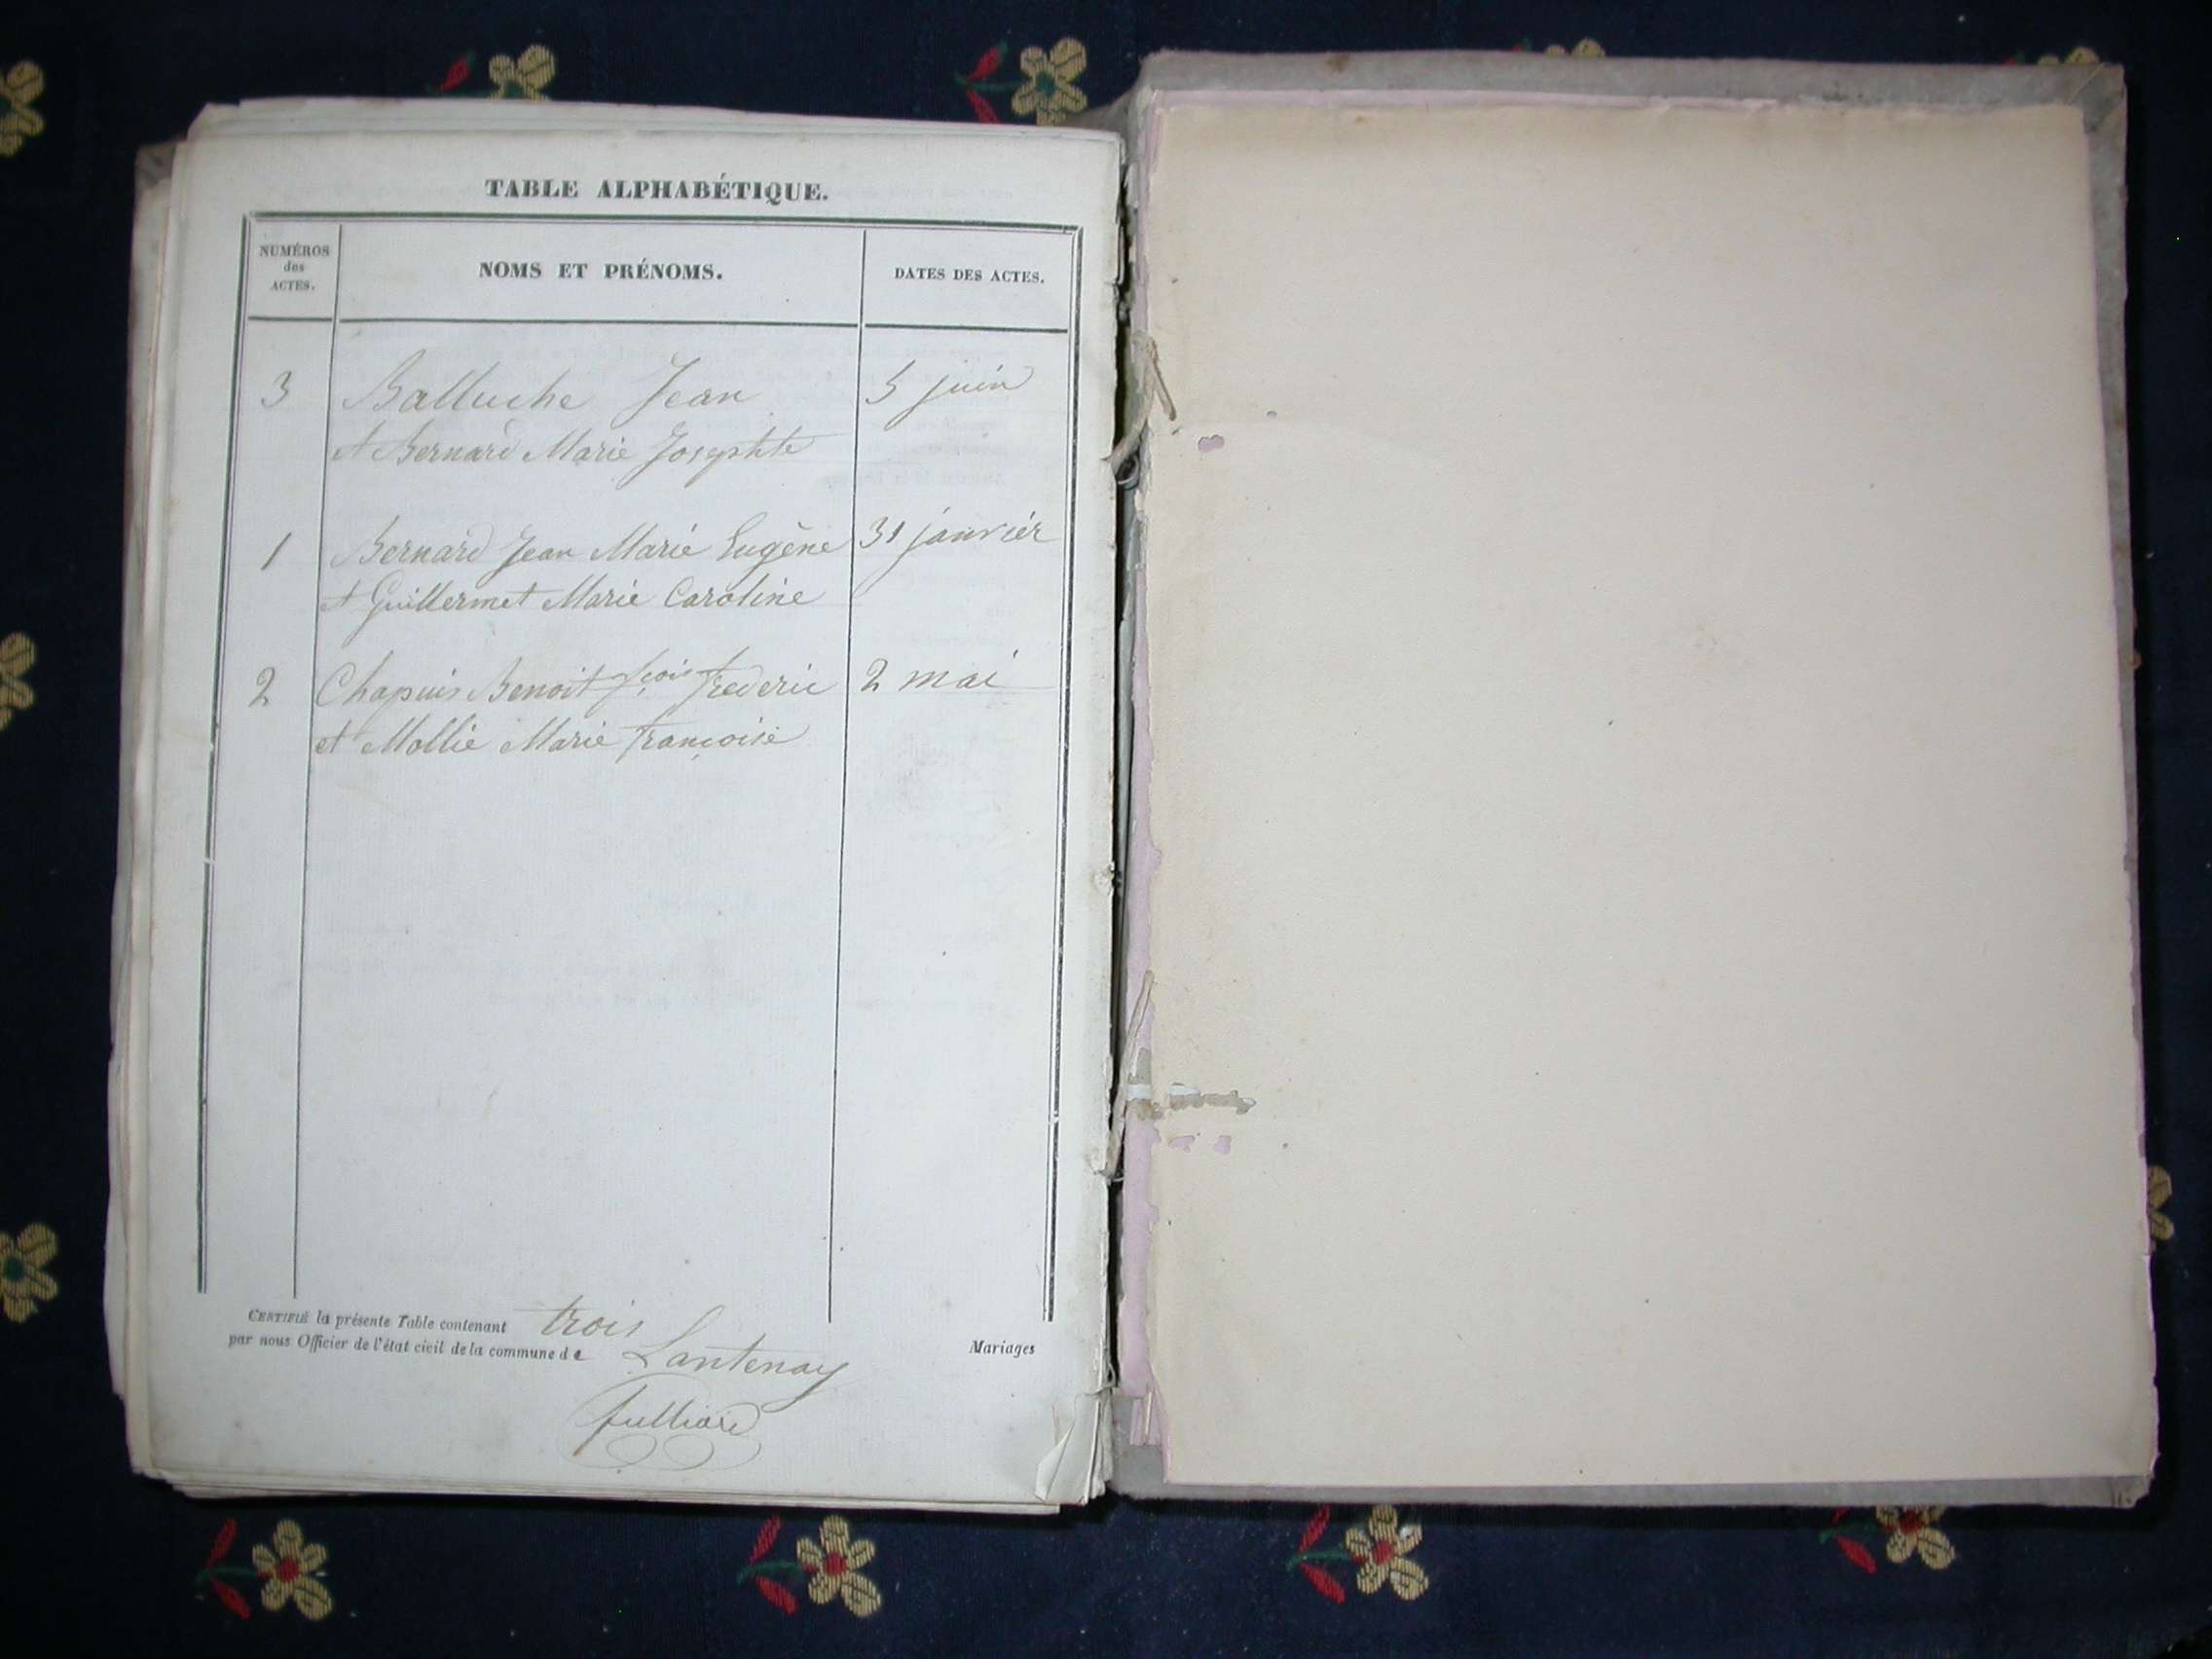 TABLE ALPHABÉTIQUE.
NUMÉROS
des
ACTES.
NOMS ET PRÉNOMS.
DATES DES ACTES.
3 Balluche Jean 5 juin
et Bernard Marie Josephte
1 Bernard Jean Marie Eugène 31 janvier
et Guillermet Marie Caroline
2 Chapuis Benoit fçois frederic 2 mai
et Mollie Marie françoise
CERTIFIÉ la présente Table contenant trois Mariages
par nous Officier de l'état civil de la commune de Lantenay
Julliard